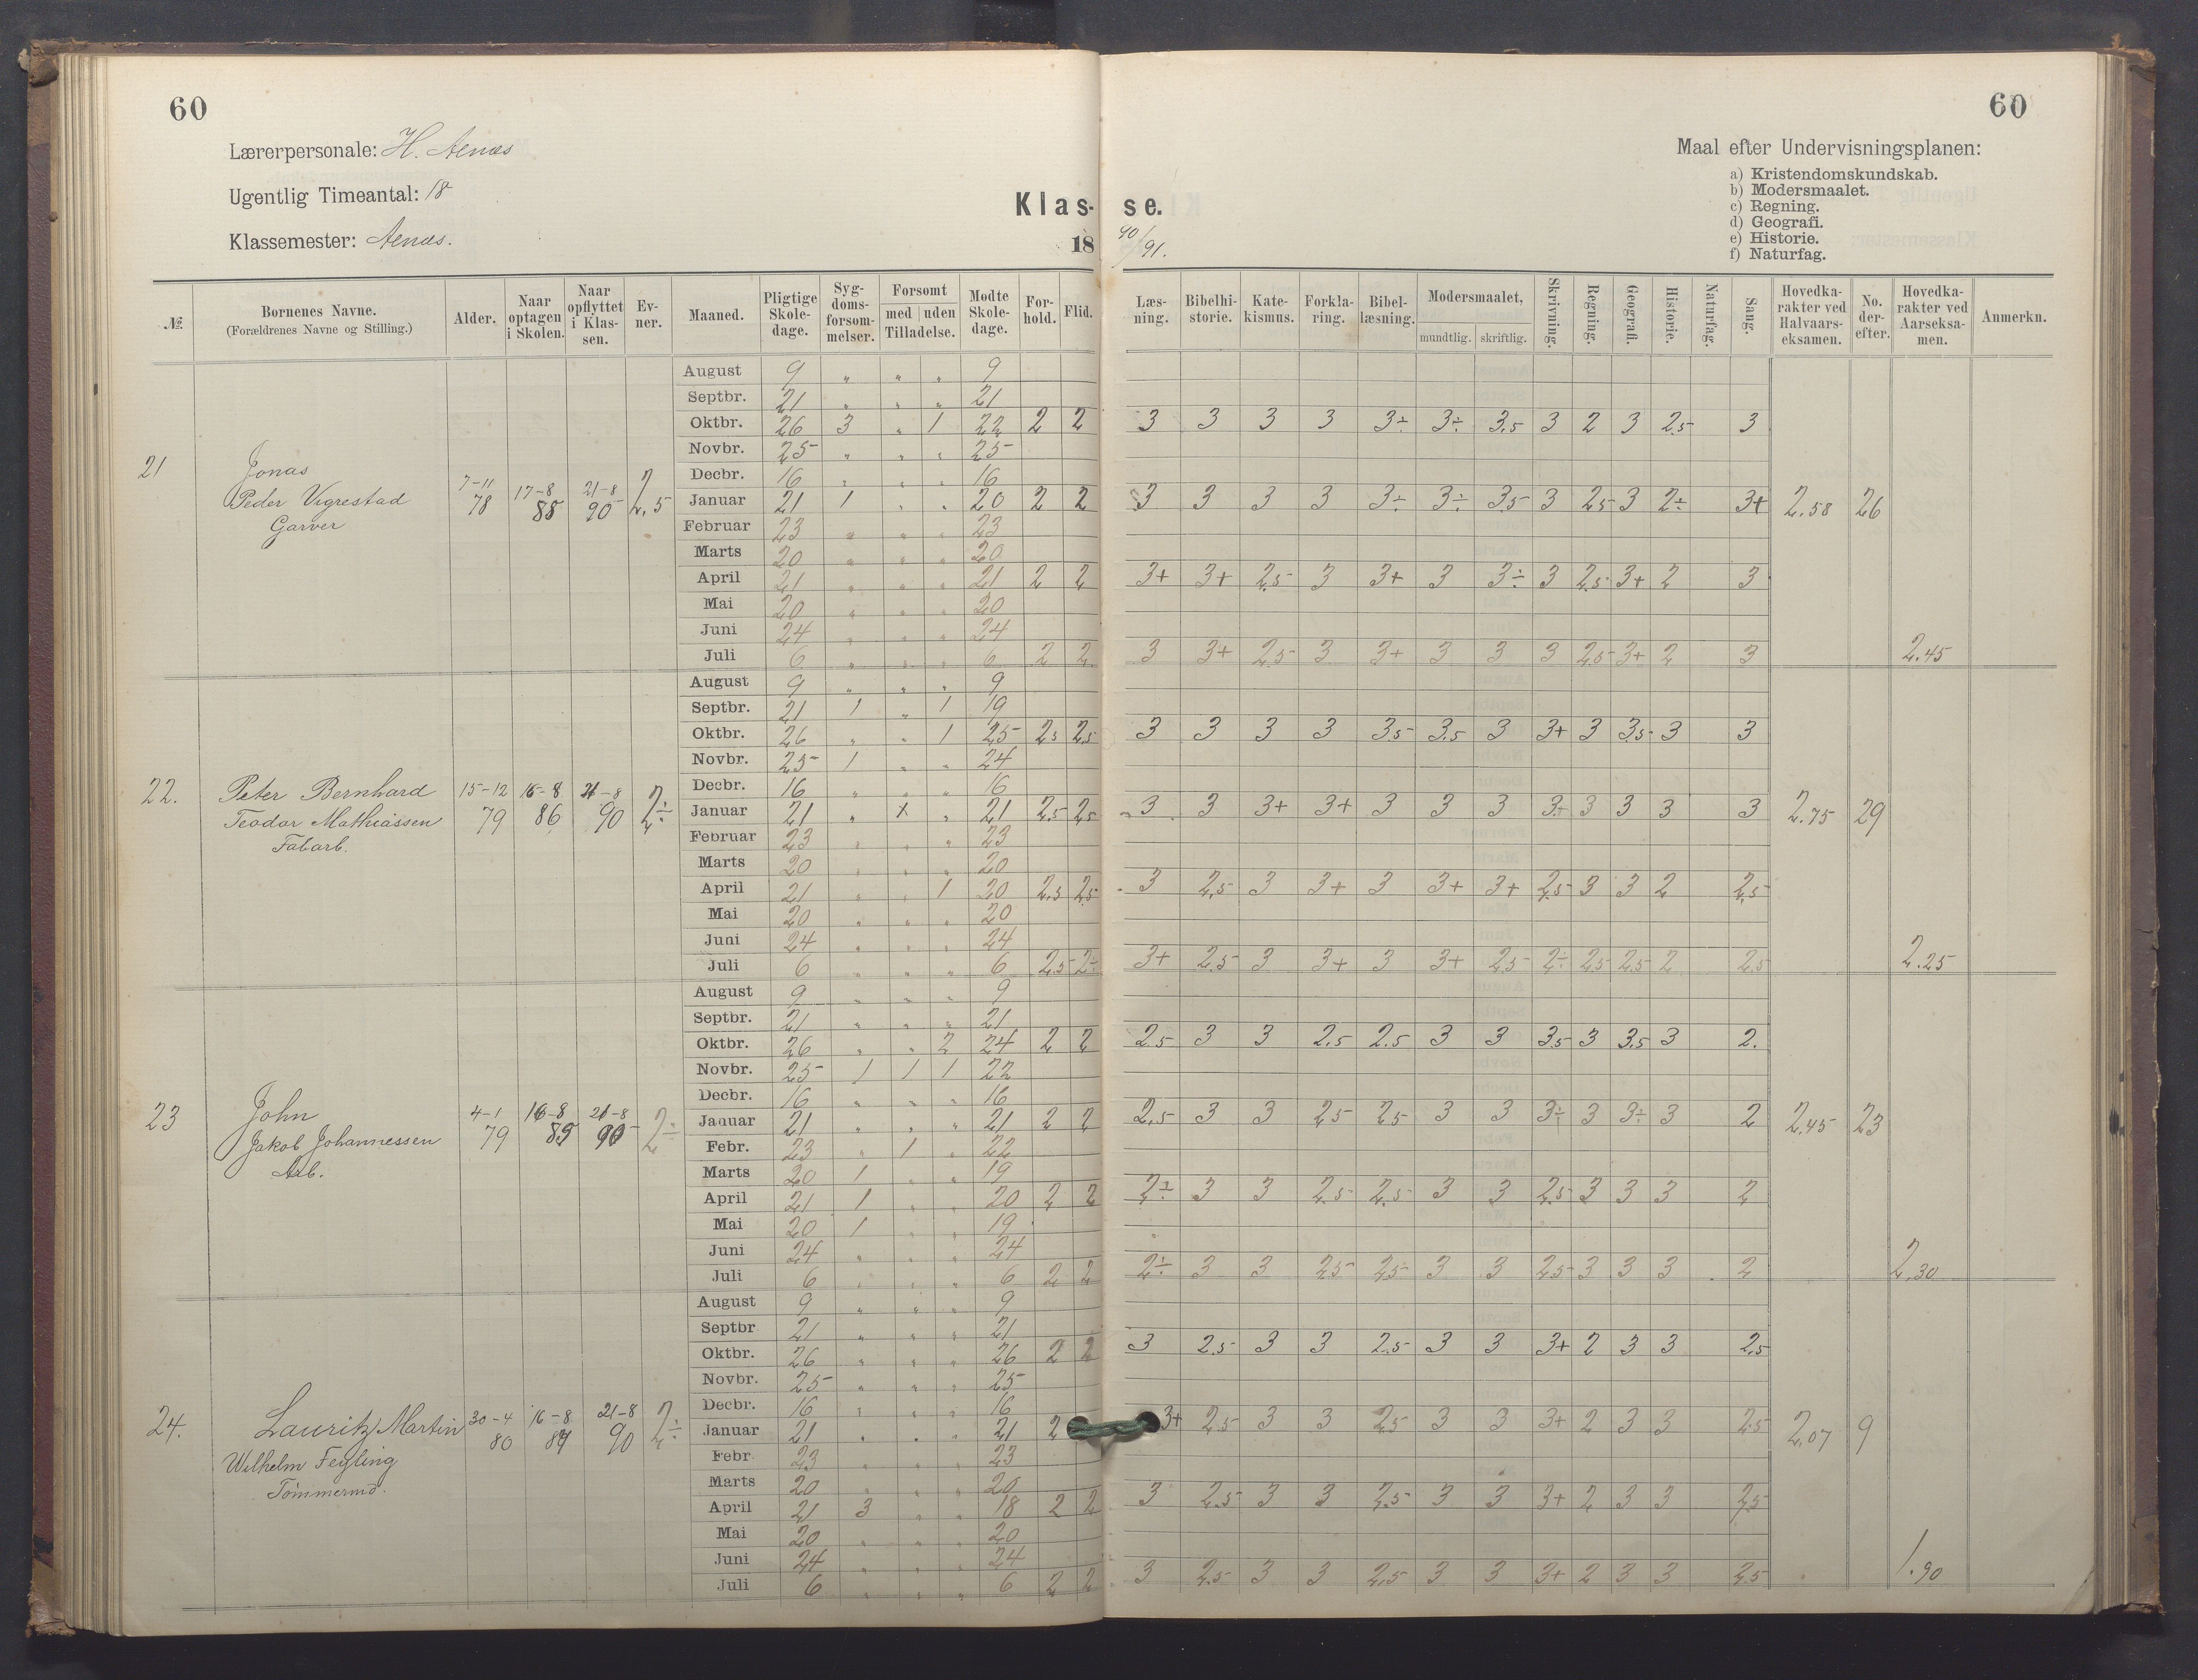 60
60
Lærerpersonale: H. Aenæs
Ugentlig Timeantal: 18
Klassemester: Aenæs.
Klas- se.
18 90/91.
Maal efter Undervisningsplanen:
a) Kristendomskundskab.
b) Modersmaalet.
c) Regning.
d) Geografi.
e) Historie.
f) Naturfag.
№ Børnenes Navne. (Forældrenes Navne og Stilling.) Alder. Naar optagen i Skolen. Naar opflyttet i Klassen. Evner. Maaned. Pligtige Skoledage. Sygdomsforsømmelser. Forsømt med uden Tilladelse. Mødte Skoledage. Forhold. Flid. Læsning. Bibelhistorie. Katekismus. Forklaring. Bibellæsning. Modersmaalet, mundtlig. skriftlig. Skrivning. Regning. Geografi. Historie. Naturfag. Sang. Hovedkarakter ved Halvaarseksamen. No. derefter. Hovedkarakter ved Aarseksamen. Anmerkn.
21 Jonas
Peder Vigrestad
Garver
7-11 78 17-8 85 21-8 90 2,5
August 9 " " " 9
Septbr. 21 " " " 21
Oktbr. 26 3 " 1 22 2 2 3 3 3 3 3÷ 3÷ 3,5 3 2 3 2.5 3
Novbr. 25 " " " 25
Decbr. 16 " " " 16
Januar 21 1 " " 20 2 2 3 3 3 3 3÷ 3÷ 3.5 3 2.5 3 2÷ 3+ 2.58 26
Februar 23 " " " 23
Marts 20 " " " 20
April 21 " " " 21 2 2 3+ 3+ 2.5 3 3+ 3 3÷ 3 2.5 3+ 2 3
Mai 20 " " " 20
Juni 24 " " " 24
Juli 6 " " " 6 2 2 3 3+ 2.5 3 3+ 3 3 3 2.5 3+ 2 3 2.45
22. Peter Bernhard
Teodor Mathiassen
Fabarb.
15-12 79 16-8 86 21-8 90 2÷
August 9 " " " 9
Septbr. 21 1 " 1 19
Oktbr. 26 " " 1 25 2.5 2.5 3 3 3 3 3.5 3.5 3 3+ 3 3.5 3 3
Novbr. 25 1 " " 24
Decbr. 16 " " " 16
Januar 21 " x " 21 2.5 2.5 3 3 3+ 3+ 3 3 3 3÷ 3 3 3 3 2.75 29
Februar 23 " " " 23
Marts 20 " " " 20
April 21 " " 1 20 2.5 2.5 3 2,5 3 3+ 3 3+ 3+ 2.5 3 3 2 2,5
Mai 20 " " " 20
Juni 24 " " " 24
Juli 6 " " " 6 2.5 2÷ 3+ 2.5 3 3+ 3 3+ 2.5 2÷ 2.5 2.5 2 2.5 2.25
23 John
Jakob Johannessen
Arb.
4-1 79 16-8 21-8 90 2÷
August 9 " " " 9
Septbr. 21 " " " 21
Oktbr. 26 " " 2 24 2 2 2.5 3 3 2.5 2.5 3 3 3.5 3 3.5 3 2.
Novbr. 25 1 1 1 22
Decbr. 16 " " " 16
Januar 21 " " " 21 2 2 2.5 3 3 2.5 2.5 3 3 3÷ 3 3÷ 3 2 2.45 23
Febr. 23 " 1 " 22
Marts 20 1 " " 19
April 21 1 " " 20 2 2 2÷ 3 3 2.5 2.5 3 3 2.5 3 3 3 2
Mai 20 1 " " 19
Juni 24 " " " 24
Juli 6 " " " 6 2 2 2÷ 3 3 2.5 2.5 3 3 2.5 3 3 3 2 2.30
24. Lauritz Martin
Wilhelm Feyling
Tømmermd.
30-4 80 16-8 87 21-8 90 2÷
August 9 " " " 9
Septbr 21 " " " 21
Oktbr. 26 " " " 26 2 2 3 2.5 3 3 2.5 3 3 3+ 2 3 3 2.5
Novbr. 25 " " " 25
Decbr. 16 " " " 16
Januar 21 " " " 21 2 3+ 2.5 3 3 2.5 3 3 3+ 2 3 3 2.5 2.07 9
Febr 23 " " " 23
Marts 20 " " " 20
April 21 3 " " 18 2 2 3 2.5 3 3 2.5 3 3 3+ 2 3 3 2.5
Mai 20 " " " 20
Juni 24 " " " 24
Juli 6 " " " 6 2 2 3 2.5 3 3 2.5 3 3 3+ 2 3 3 2.5 1.90